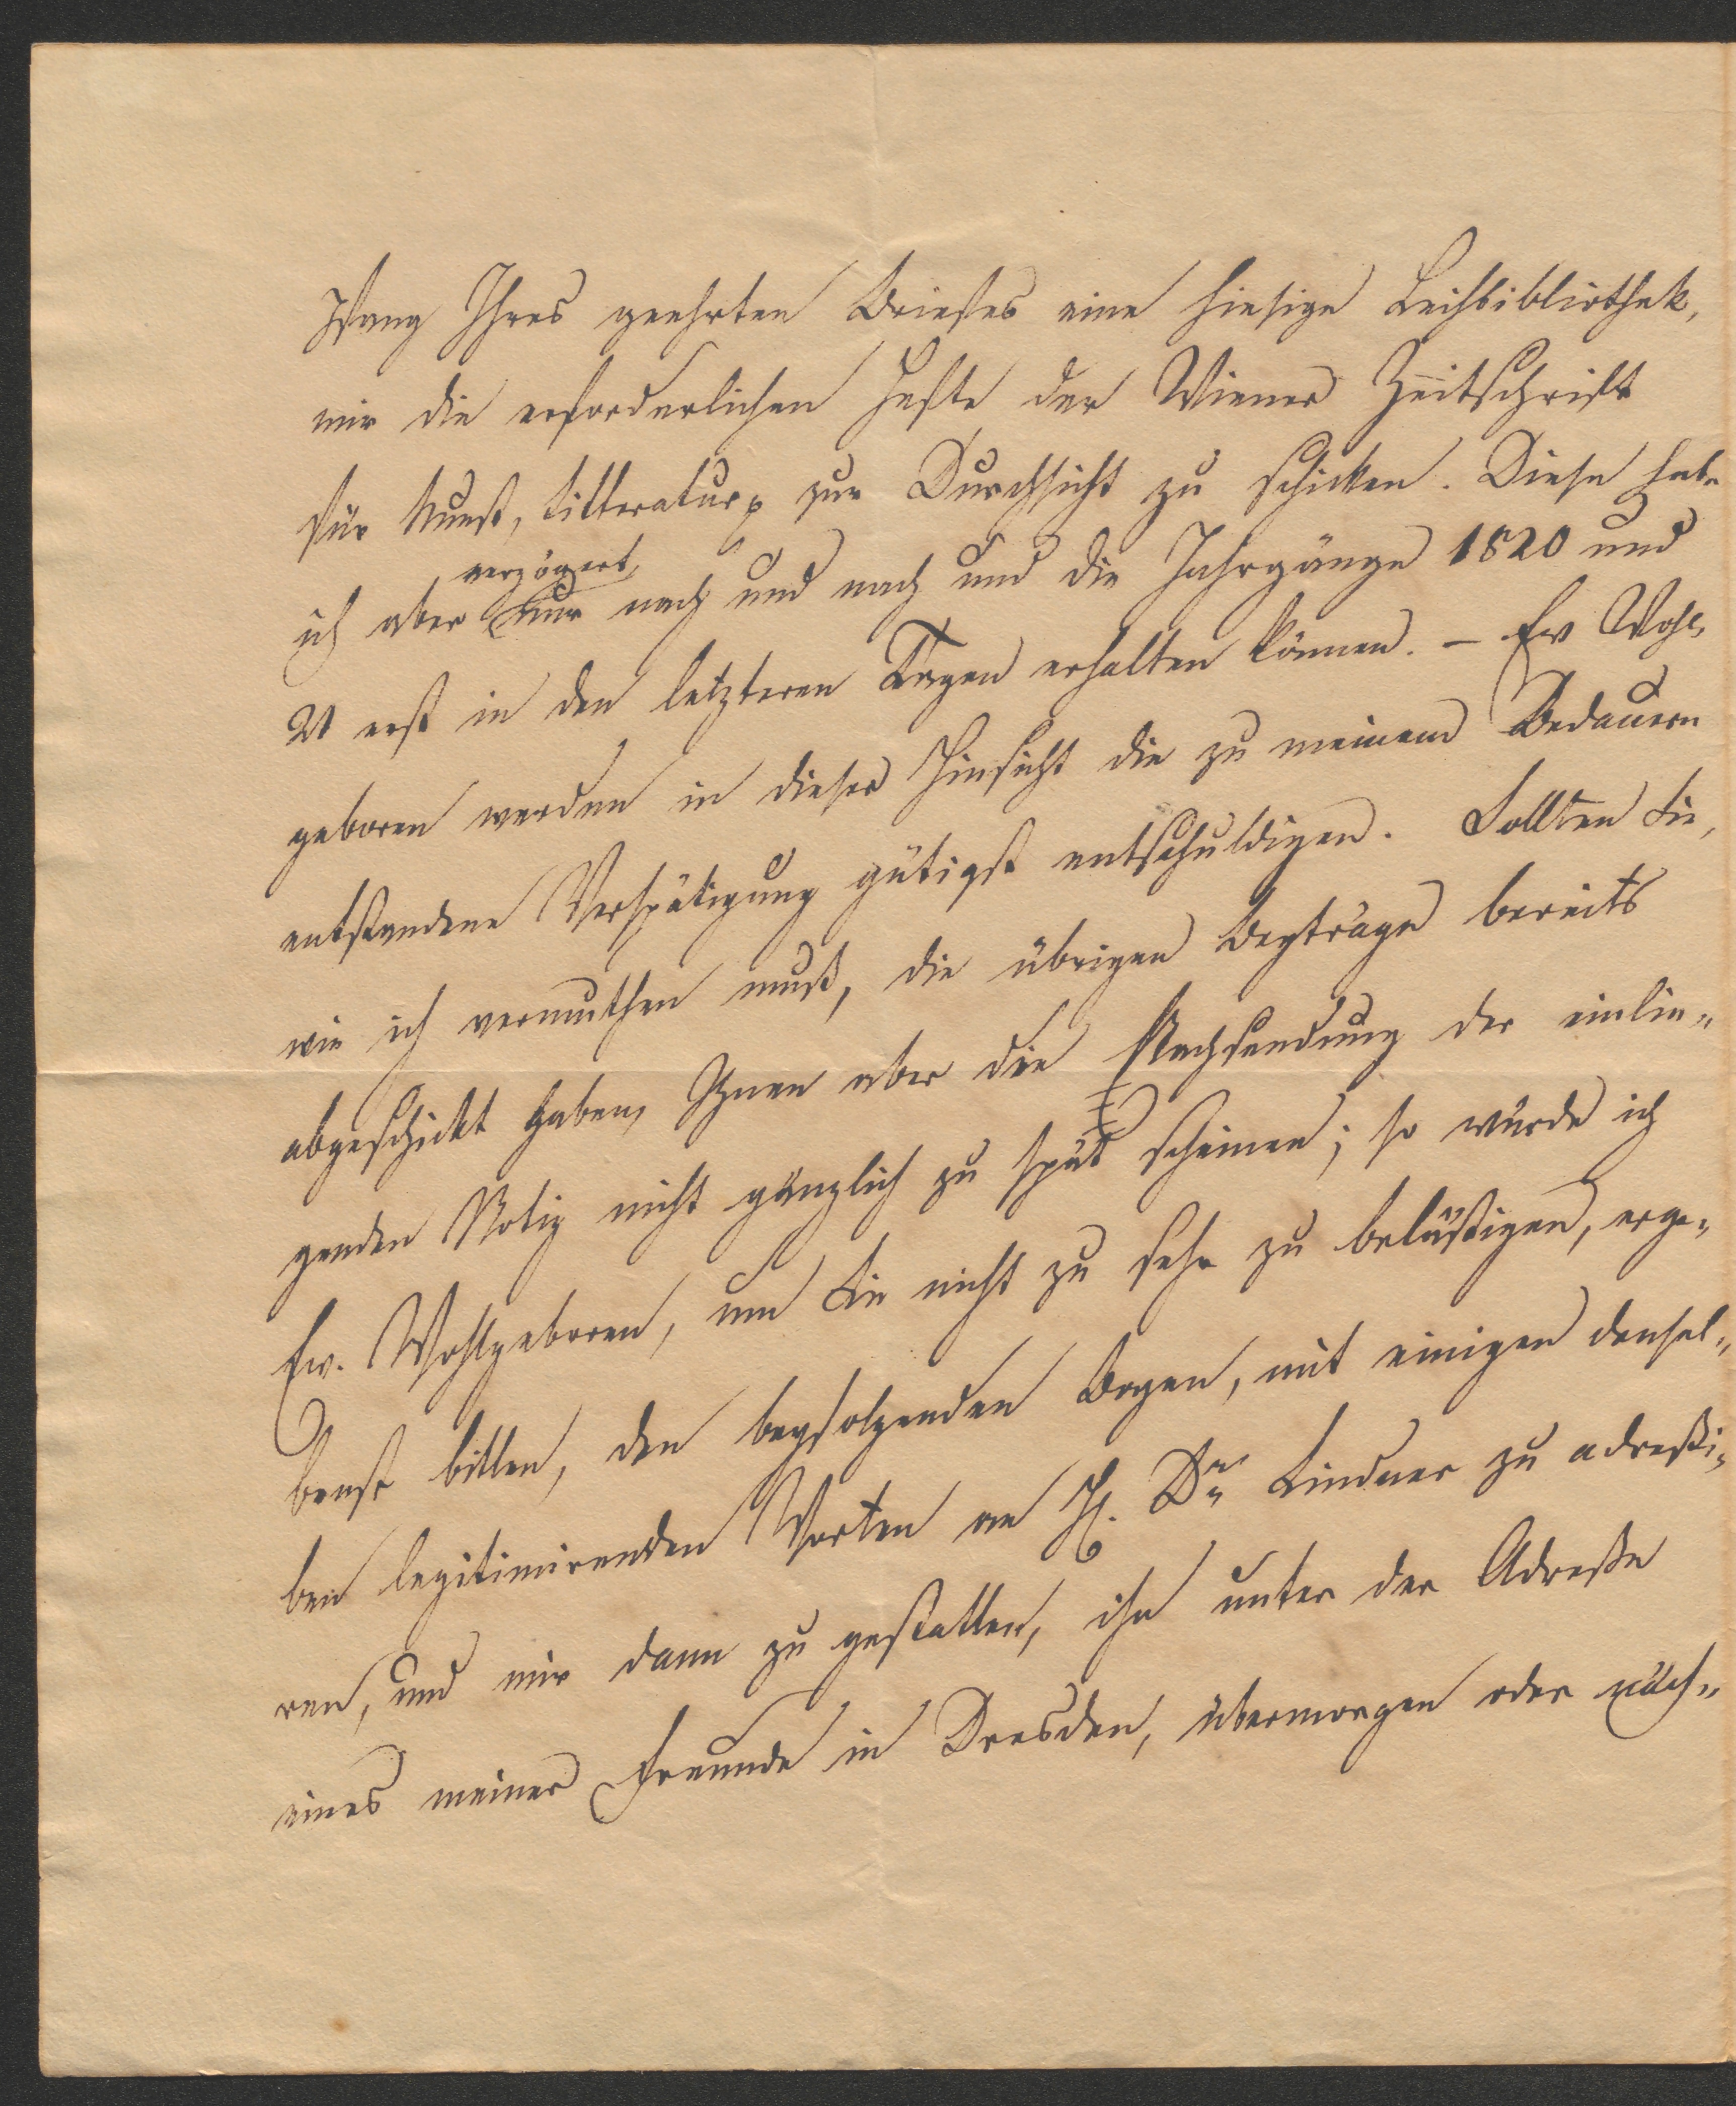 pfang Ihres geehrten Briefes eine hiesige Leihbibliothek,
mir die erforderlichen Hefte der Wiener Zeitschrift
für Kunst, Litteratur zur Durchsicht zu schicken. Diese habe
verzögert,
ich aber nur nach und nach und die Jahrgänge 1820 und
21 erst in den letzteren Tagen erhalten können. – Ew Wohl
geboren werden in dieser Hinsicht die zu meinem Bedauern
entstandene Verspätigung gütigst entschuldigen. Sollten Sie,
wie ich vermuthen muß, die übrigen Beyträge bereits
abgeschickt haben, Ihnen aber die Nachsendung der einlie„
genden Notiz nicht gänzlich zu spät scheinen; so würde ich
Ew. Wohlgeboren, um Sie nicht zu sehr zu belästigen, erge„
benst bitten, den beyfolgenden Bogen, mit einigen densel„
ben legitimirenden Worten an H. Dr Lindner zu adreßi„
ren, und mir dann zu gestatten, ihn unter der Adreße
eines meiner Freunde in Dresden, übermorgen oder näch„